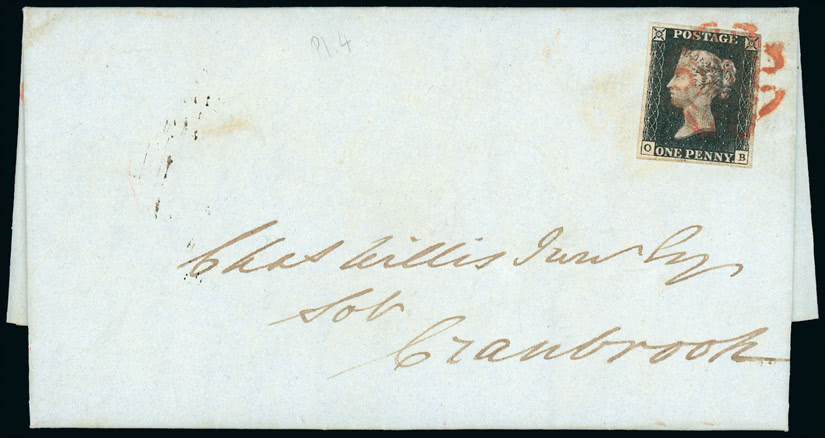 Pl. 4
POSTAGE
O ONE PENNY B
Chas Willis Junr Esq
Sol
Cranbrook